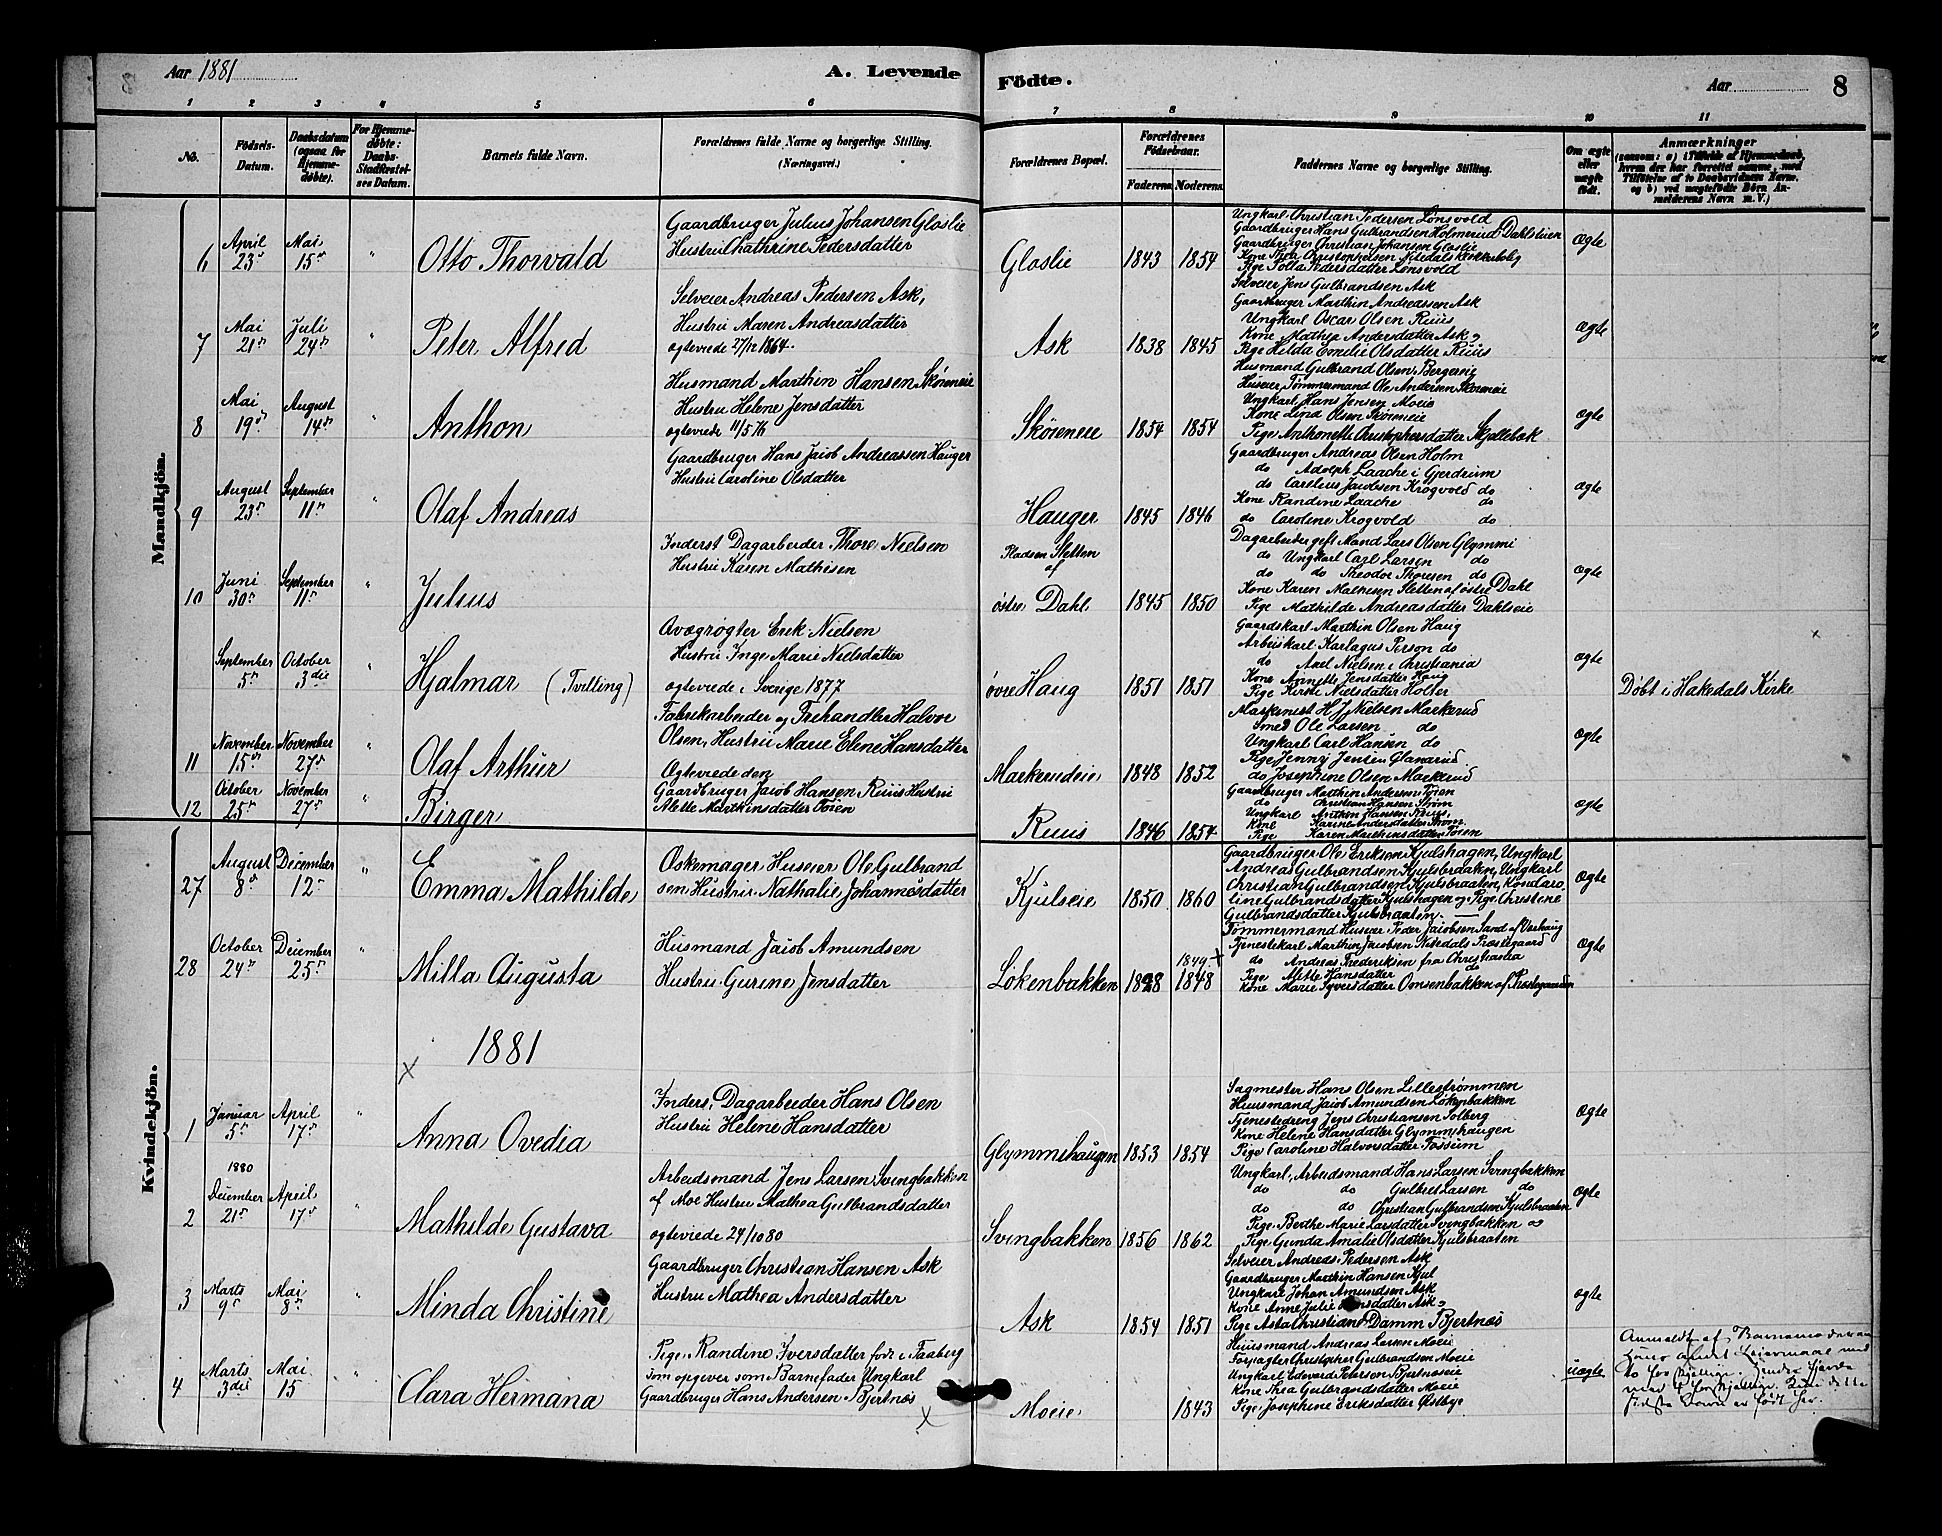 Aar 1881
A. Levende
Födte.
Aar
8
1 2 3 4 5 6 7 8 9 10 11
No.
Födsels-
Datum.
Daabsdatum
(ogsaa for
Hjemme-
døbte).
For Hjemme-
døbte:
Daabs-
Stadfæstel-
ses Datum.
Barnets fulde Navn.
Forældrenes fulde Navne og borgerlige Stilling.
(Næringsvei.)
Forældrenes Bopæl.
Forældrenes
Födselsaar.
Faderens.
Moderens.
Faddernes Navne og borgerlige Stilling.
Om ægte
eller
uægte
födt.
Anmærkninger
(saasom: a) i Tilfælde af Hjemmedaab,
hvem der har forrettet samme, med
Tilföielse af to Daabsvidners Navne.
og b) ved uægtefödte Börn An-
melderens Navn m. V.)
Mandkjön.
6
April
23de
Mai
15de
"
Otto Thorvald
Gaardbruger Julius Johansen Gloslie
Hustru Cathrine Pedersdatter
Gloslie
1843
1854
Ungkarl Christian Pedersen Lønsvold
Gaardbruger Hans Gulbrandsen Holmerud Dahlstuen
Gaardbruger Christian Johansen Gloslie
Kone Thea Christophersen Nitedals Krudtverk
Pige Solla Pedersdatter Lønsvold
Ægte
7
Mai
21de
Juli
24de
"
Peter Alfred
Selveier Andreas Pedersen Ask,
Hustru Maren Andreasdatter
ægteviede 27/12 1864.
Ask
1838
1845
Selveier Jens Gulbrandsen Ask
Gaardbruger Marthin Andreassen Ask
Ungkarl Oscar Olsen Ruus
Kone Mathea Andersdatter Ask og
Pige Helda Emelie Olsdatter Ruus
ægte
8
Mai
19de
August
14de
"
Anthon
Husmand Marthin Hansen Skøreneie
Hustru Helene Jensdatter
ægteviede 11/5 76
Skøreneie
1854
1854
Husmand Gulbrand Olsen Bergerseie
Huseier, Tømmermand Ole Andersen Skøreneie
Ungkarl Hans Jensen Moeie
Kone Lina Olsen Skøreneie
Pige Anthonette Christophersdatter Skjøllebæk
ægte
9
August
23de
September
11te
"
Olaf Andreas
Gaardbruger Hans Jacob Andreassen Hauger
Hustru Caroline Olsdatter
Hauger
1845
1846
Gaardbruger Andreas Olsen Holm
do Adolph Laache i Gjerdrum
do Carelius Jacobsen Krogvold do
Kone Randine Laache do
do Caroline Krogvold do
ægte
10
Juni
30te
September
11te
"
Julius
Inderst Dagarbeider Thore Nielsen
Hustru Karen Mathisen
Pladsen Sletten
af
østre Dahl
1845
1850
Dagarbeider gift Mand Lars Olsen Glymmi
do Ungkarl Carl Larsen do
do do Theodor Thoresen do
Kone Karen Mathisen Sletten af østre Dahl
Pige Mathilde Andreasdatter Dahlseie
ægte
September
5te
October
3die
"
Hjalmar (Tvilling)
Qvægrøgter Erik Nielsen
Hustru Inge Marie Nielsdatter
ægteviede i Sverige 1877
øvre Haug
1851
1851
Gaardskarl Marthin Olsen Haug
Arbeidskarl Karlagus Person do
do Axel Nielsen i Christiania
Kone Annette Jensdatter Haug
Pige Kirsti Nielsdatter Holter
ægte
Døbt i Hakedals Kirke
11
November
15de
November
27de
"
Olaf Arthur
Fabrikarbeider og Træhandler Halvor
Olsen, Hustru Marie Elene Hansdatter
Ægteviede den
Markerudeie
1848
1852
Maskinist H J Nielsen Markerud
Smed Ole Larsen do
Ungkarl Carl Hansen do
Pige Jenny Jensen Glanarud
do Josephine Olsen Markerud
ægte
12
October
25de
November
27de
"
Birger
Gaardbruger Jacob Hansen Ruus Hustru
Alette Marthinsdatter Toien
Ruus
1846
1854
Gaardbruger Marthin Andersen Toien
do Christian Hansen Strøm
Ungkarl Anthon Hansen Ruus,
Kone Karine Andersdatter Strøm
Pige Karen Marthinsdatter Toien
ægte
Kvindekjön.
27
August
8de
December
12te
"
Emma Mathilde
Æskemager Huseier Ole Gulbrand
sen Hustru Nathalie Johannesdatter
Kjulseie
1850
1860
Gaardbruger Ole Eriksen Kjulshagen, Ungkarl
Andreas Gulbrandsen Kjulsbraaten, Ungkarl
Christian Gulbrandsen, Kjulsbraaten, Kone Caro
line Gulbrandsdatter Kjulshagen og Pige Christine
Gulbrandsdatter Kjulsbraaten.
Ægte
28
October
24de
December
25de
"
Milla Augusta
Husmand Jacob Amundsen
Hustru Gurine Jensdatter
Løkenbakken
1828
1849 +
1848
Tømmermand Huseier Peder Jacobsen Sand af Verhaug
Tjenestekarl Marthin Jacobsen Nitedals Præstegaard
do Andreas Frederiksen fra Christiania
Pige Mette Hansdatter do
Kone Marie Syversdatter Ornsenbakken af Præstegaarden
Ægte
1881
1
Januar
5te
April
17de
"
Anna Ovedia
Inderst, Dagarbeider Hans Olsen
Hustru Helene Hansdatter
Glymmihaugen
1853
1854
Sagmester Hans Olsen Lillestrømmen
Huusmand Jacob Amundsen Løkenbakken
Tjenestedreng Jens Christiansen Solberg
Kone Helene Hansdatter Glymmihaugen
Pige Caroline Halvorsdatter Fossum
Ægte
2
1880
December
21de
April
17de
"
Mathilde Gustava
Arbeidsmand Jens Larsen Svingbakken
af Moe Hustru Mathea Gulbrandsdatter
ægteviede 24/10 80
Svingbakken
1856
1862
Ungkarl, Arbeidsmand Hans Larsen Svingbakken
do do Gulbret Larsen do
do do Christian Gulbrandsen Kjulsbraaten
Pige Berthe Marie Larsdatter Svingbakken og
Pige Gunda Amalie Olsdatter Kjulsbraaten
ægte
3
Marts
9de
Mai
8de
"
Minda Christine
Gaardbruger Christian Hansen Ask
Hustru Mathea Andersdatter
Ask
1854
1851
Selveier Andreas Pedersen Ask
Gaardbruger Marthin Hansen Kjul
Ungkarl Johan Amundsen Ask
Kone Anne Julie Hansdatter Ask og
Pige Asta Christiane Damm Bjertnæs
ægte
4
Marts
3die
Mai
15
"
Clara Hermana
Pige, Randine Iversdatter født i Faaberg
som opgiver som Barnefader Ungkarl
Gaardbruger Hans Andersen Bjertnæs
Moeie
1843
Huusmand Andreas Larsen Moeie
Forpagter Christopher Gulbrandsen Moeie
Ungkarl Edevard Petersen Bjertnæseie
Kone Thea Gulbrandsdatter Moeie
Pige, Josephine Eriksdatter Østbye
uægte
Anmeldt af Barnemoderen